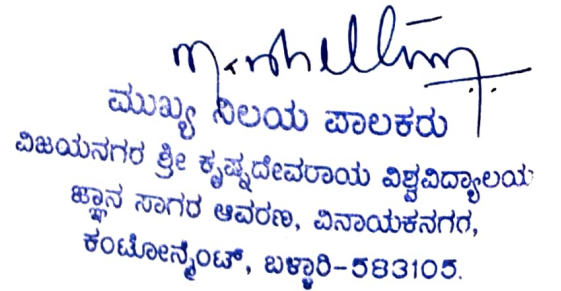 ಮುಖ್ಯ ನಿಲಯ ಪಾಲಕರು
ವಿಜಯನಗರ ಶ್ರೀ ಕೃಷ್ಣದೇವರಾಯ ವಿಶ್ವವಿದ್ಯಾಲಯ
ಜ್ಞಾನ ಸಾಗರ ಆವರಣ, ವಿನಾಯಕನಗರ,
ಕಂಟೋನ್ಮೆಂಟ್, ಬಳ್ಳಾರಿ-583105.